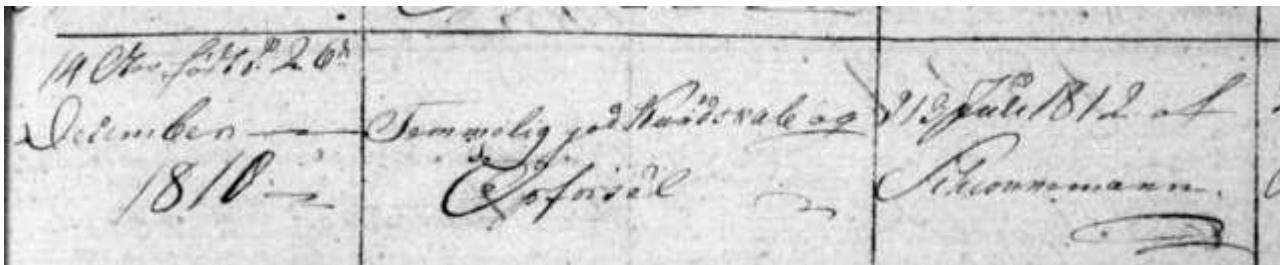 14 Aar, født d. 26de
December
1810
Temmelig god Kundskab og
Opførsel
d 13 Juli 1812 af